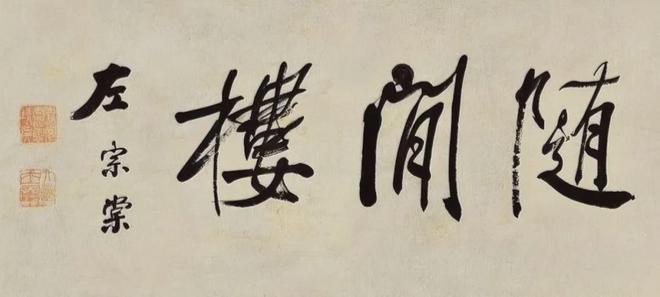 随閒樓
左宗棠